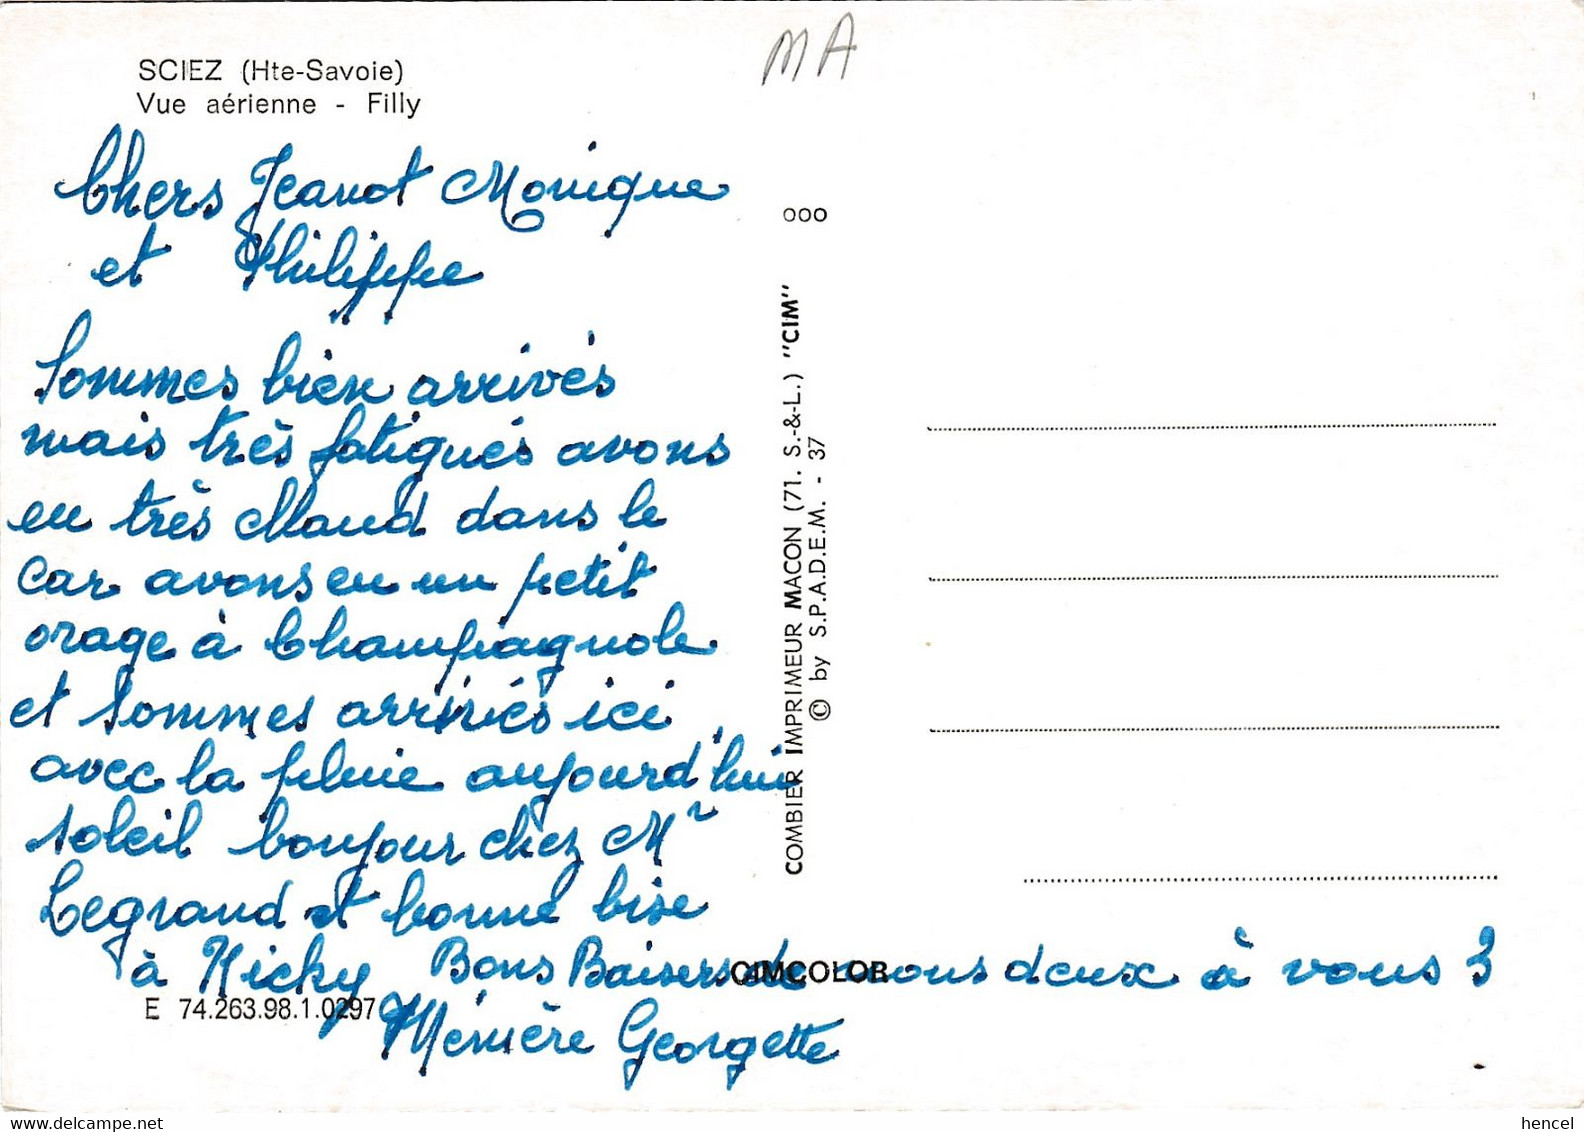 SCIEZ (Hte-Savoie)
Vue aérienne - Filly
MA
Chers Jeanot Monique
et Philippe
Sommes bien arrivés
mais très fatigués avons
eu très chaud dans le
car avons eu un petit
orage à Champagnole
et sommes arrivés ici
avec la pluie aujourd'hui
soleil bonjour chez Mr
Legrand et bonne bise
à Kicky Bons Baisers de nous deux à vous 3
Ménière Georgette
E 74.263.98.1.0297
CIMCOLOR
000
COMBIER IMPRIMEUR MACON (71. S.-&-L.) "CIM"
© by S.P.A.D.E.M. - 37
delcampe.net
hencel